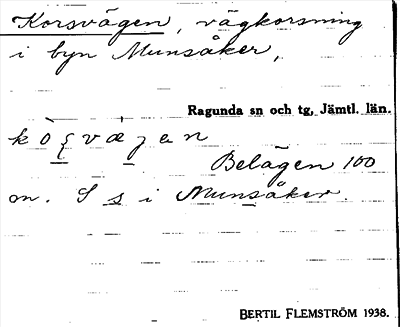 Korsvägen, vägkorsning
i byn Munsåker,
Ragunda sn och tg, Jämtl. län.
Belägen 100
m. S s i Munsåker.
BERTIL FLEMSTRÖM 1938.